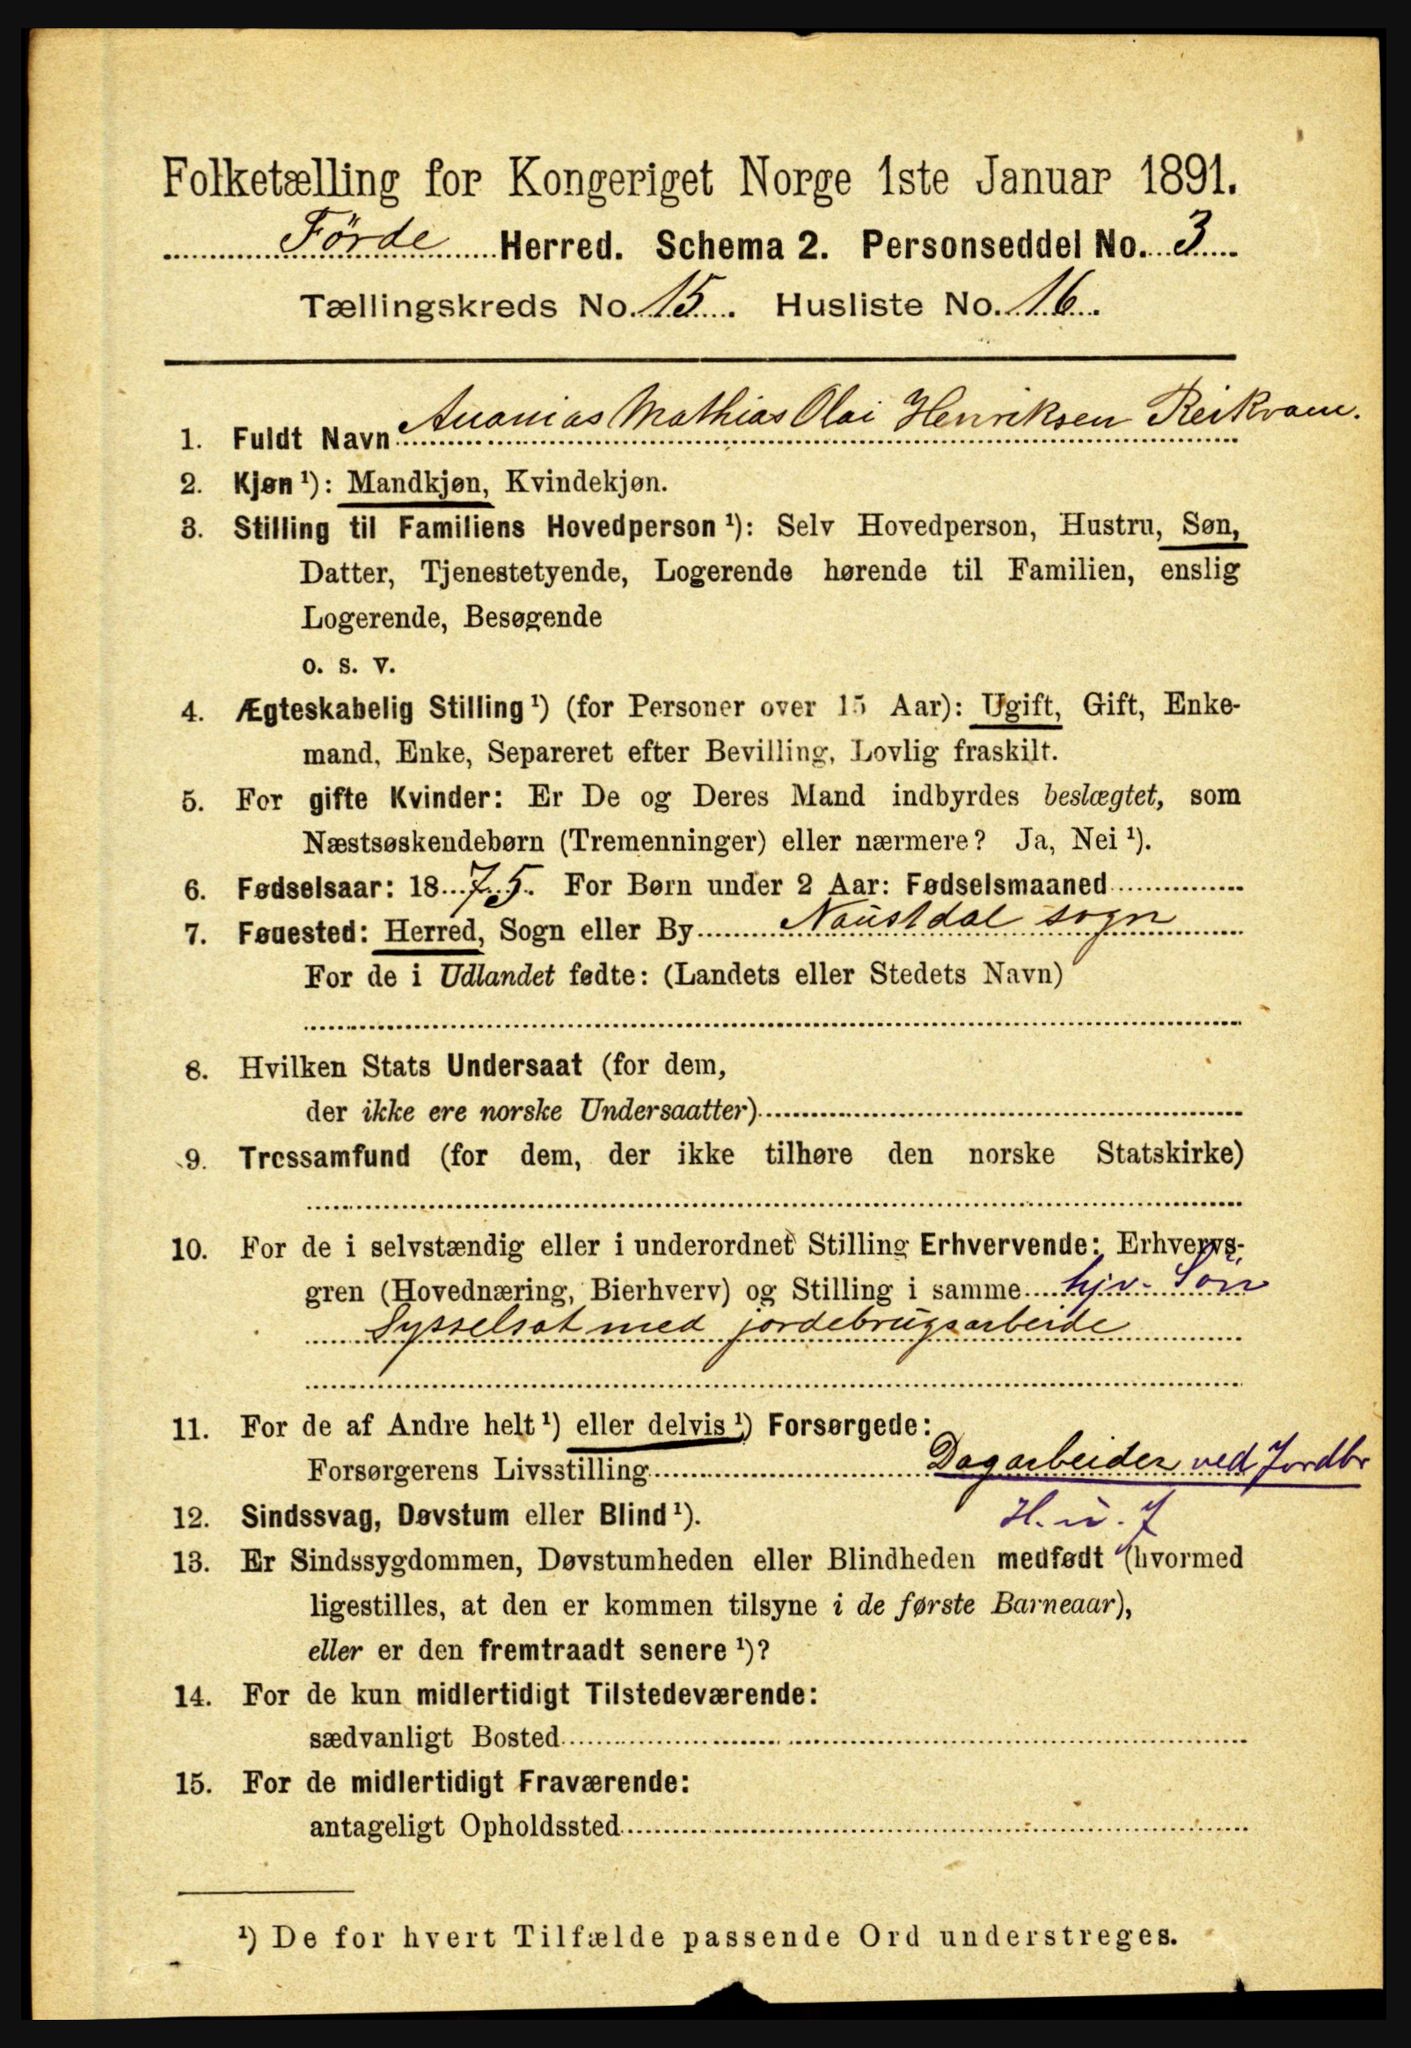 Folketælling for Kongeriget Norge 1ste Januar 1891.
Förde Herred. Schema 2. Personseddel No. 3
Tællingskreds No. 15. Husliste No. 16.
1. Fuldt Navn Ananias Mathias Olai Henriksen Reikvam.
2. Kjøn ¹): Mandkjøn, Kvindekjøn.
3. Stilling til Familiens Hovedperson ¹): Selv Hovedperson, Hustru, Søn,
Datter, Tjenestetyende, Logerende hørende til Familien, enslig
Logerende, Besøgende
o. s. v.
4. Ægteskabelig Stilling ¹) (for Personer over 15 Aar): Ugift, Gift, Enke-
mand, Enke, Separeret efter Bevilling, Lovlig fraskilt.
5. For gifte Kvinder: Er De og Deres Mand indbyrdes beslægtet, som
Næstsøskendebørn (Tremenninger) eller nærmere? Ja, Nei ¹).
6. Fødselsaar: 1875. For Børn under 2 Aar: Fødselsmaaned
7. Føuested: Herred, Sogn eller By Naustdal sogn
For de i Udlandet fødte: (Landets eller Stedets Navn)
8. Hvilken Stats Undersaat (for dem,
der ikke ere norske Undersaatter)
9. Trossamfund (for dem, der ikke tilhøre den norske Statskirke)
10. For de i selvstændig eller i underordnet Stilling Erhvervende: Erhvervs-
gren (Hovednæring, Bierhverv) og Stilling i samme hjv. Søn
Sysselsat med jordebrugsarbeide
11. For de af Andre helt ¹) eller delvis ¹) Forsørgede:
Forsørgerens Livsstilling Dagarbeider ved Jordbr
H. u. J
12. Sindssvag, Døvstum eller Blind ¹).
13. Er Sindssygdommen, Døvstumheden eller Blindheden medfødt (hvormed
ligestilles, at den er kommen tilsyne i de første Barneaar),
eller er den fremtraadt senere ¹)?
14. For de kun midlertidigt Tilstedeværende:
sædvanligt Bosted
15. For de midlertidigt Fraværende:
antageligt Opholdssted
¹) De for hvert Tilfælde passende Ord understreges.